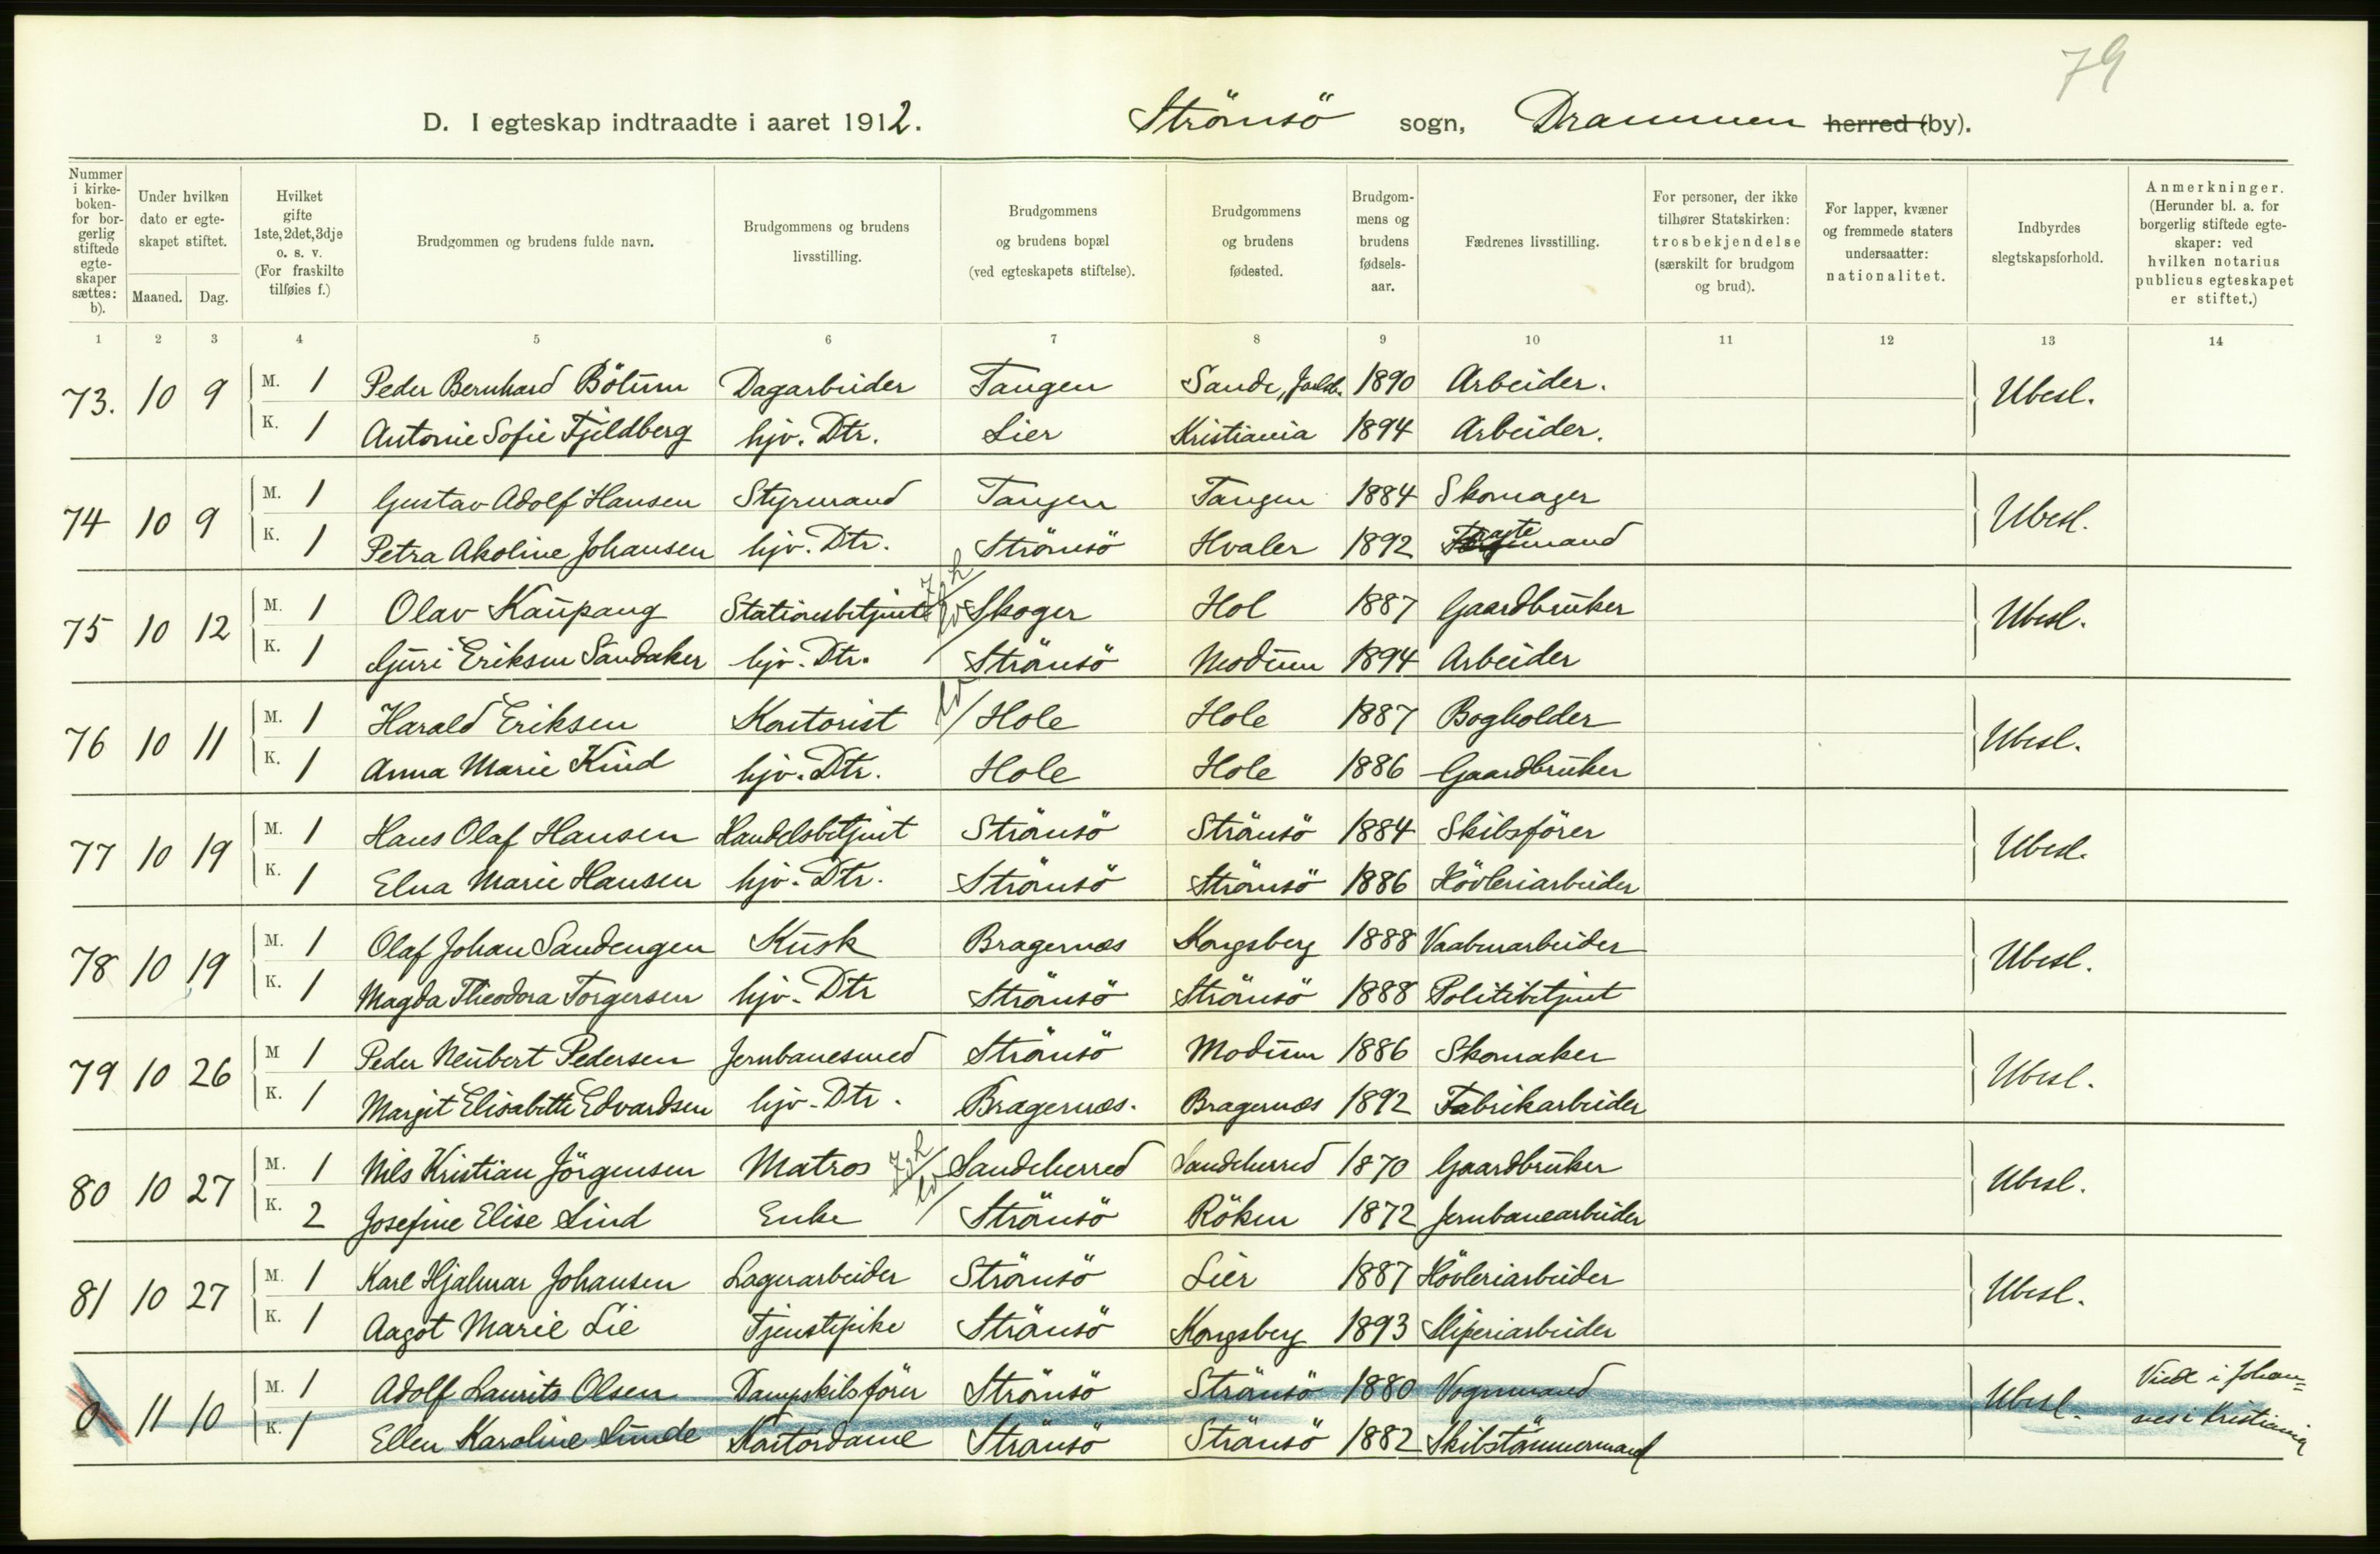 79
D. I egteskap indtraadte i aaret 1912. Strömsö sogn, Drammen herred (by).
Nummer i kirkeboken for borgerlig stiftede egteskaper sættes: b). Under hvilken dato er egteskapet stiftet. Maaned. Dag. Hvilket gifte 1ste, 2det, 3dje o. s. v. (For fraskilte tilføies f.) Brudgommen og brudens fulde navn. Brudgommens og brudens livsstilling. Brudgommens og brudens bopæl (ved egteskapets stiftelse). Brudgommens og brudens fødested. Brudgommens og brudens fødselsaar. Fædrenes livsstilling. For personer, der ikke tilhører Statskirken: trosbekjendelse (særskilt for brudgom og brud). For lapper, kvæner og fremmede staters undersaatter: nationalitet. Indbyrdes slegtskapsforhold. Anmerkninger. (Herunder bl. a. for borgerlig stiftede egteskaper: ved hvilken notarius publicus egteskapet er stiftet.)
1 2 3 4 5 6 7 8 9 10 11 12 13 14
73. 10 9 M. 1 Peder Bernhard Bölum Dagarbeider Tangen Sande, Jarlsb. 1890 Arbeider. Ubesl.
K. 1 Antonie Sofie Fjeldberg hjv. Dtr. Lier Kristiania 1894 Arbeider.
74 10 9 M. 1 Gustav Adolf Hansen Styrmand Tangen Tangen 1884 Skomager Ubesl.
K. 1 Petra Akoline Johansen hjv. Dtr. Strömsö Hvaler 1892
75 10 12 M. 1 Olav Kaupang Stationsbetjent Skoger Hol 1887 Gaardbruker Ubesl.
K. 1 Guri Eriksen Sandaker hjv. Dtr. Strömsö Modum 1894 Arbeider
76 10 11 M. 1 Harald Eriksen Kontorist Hole Hole 1887 Bogholder Ubesl.
K. 1 Anna Marie Kind hjv. Dtr. Hole Hole 1886 Gaardbruker
77 10 19 M. 1 Hans Olaf Hansen Handelsbetjent Strömsö Strömsö 1884 Skibsförer Ubesl.
K. 1 Elna Marie Hansen hjv. Dtr. Strömsö Strömsö 1886 Hövleriarbeider
78 10 19 M. 1 Olaf Johan Sandengen Kusk Bragernæs Kongsberg 1888 Vaabenarbeider Ubesl.
K. 1 Magda Theodora Torgersen hjv. Dtr Strömsö Strömsö 1888 Politibetjent
79 10 26 M 1 Peder Neubert Pedersen Jernbanesmed Strömsö Modum 1886 Skomaker Ubesl.
K. 1 Margit Elisabeth Edvardsen hjv. Dtr. Bragernæs. Bragernæs 1892 Fabrikarbeider
80 10 27 M. 1 Nils Kristian Jörgensen Matros Sandeherred Sandeherred 1870 Gaardbruker Ubesl.
K. 2 Josefine Elise Lind Enke Strömsö Röken 1872 Jernbanearbeider
81 10 27 M. 1 Karl Hjalmar Johansen Lagerarbeider Strömsö Lier 1887 Hövleriarbeider Ubesl.
K. 1 Aagot Marie Lie Tjenstepike Strömsö Kongsberg 1893 Sliperiarbeider
0 11 10 M. 1 Adolf Laurits Olsen Dampskibsförer Strömsö Strömsö 1880 Vognmand Ubesl. Viede i Johan=
K. 1 Ellen Karoline Lunde Kontordame Strömsö Strömsö 1882 Skibstömmermand nes i Kristiania